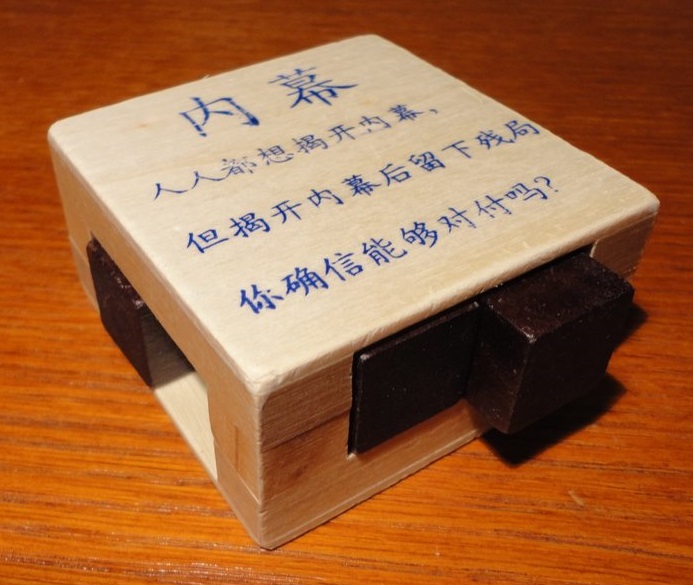 内幕
人人都想揭开内幕,
但揭开内幕后留下残局
你确信能够对付吗?